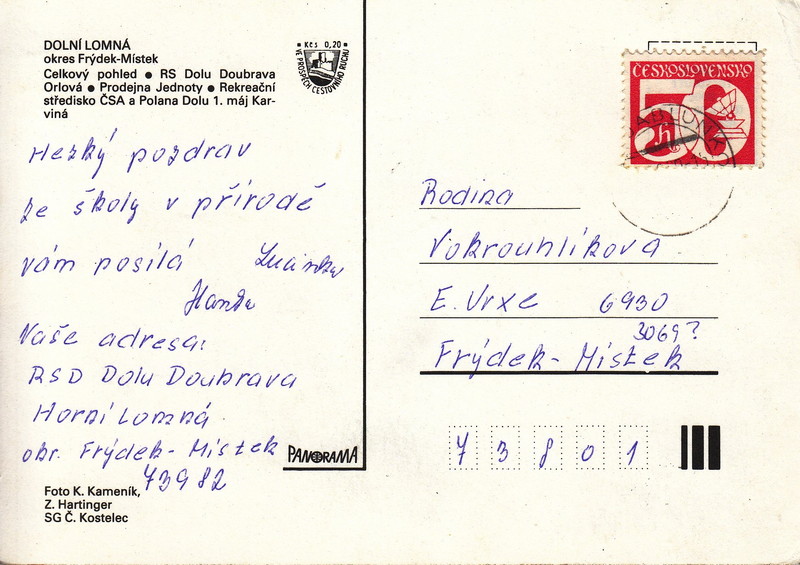 DOLNÍ LOMNÁ
okres Frýdek-Místek
Celkový pohled ● RS Dolu Doubrava
Orlová ● Prodejna Jednoty ● Rekreační
středisko ČSA a Polana Dolu 1. máj Kar-
viná
Kčs 0,20
VE PROSPĚCH CESTOVNÍHO RUCHU
Hezký pozdrav
ze školy v přírodě
vám posílá Lucinka
Hanka
Naše adresa:
RSD Dolu Doubrava
Horní Lomná
okr. Frýdek-Místek
73982
PANORAMA
Foto K. Kameník,
Z. Hartinger
SG Č. Kostelec
ČESKOSLOVENSKO
50
h
Rodina
Vokrouhlíkova
E. Urxe 6930
3069?
Frýdek-Místek
73801